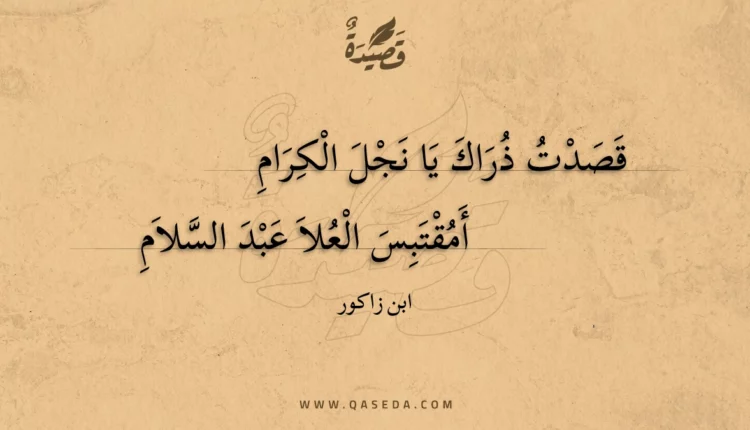 قَصِيْدَةٌ
قَصَدْتُ ذُرَاكَ يَا نَجْلَ الْكِرَامِ
أَمُقْتَبِسَ الْعُلاَ عَبْدَ السَّلاَمِ
ابن زاكور
WWW.QASEDA.COM